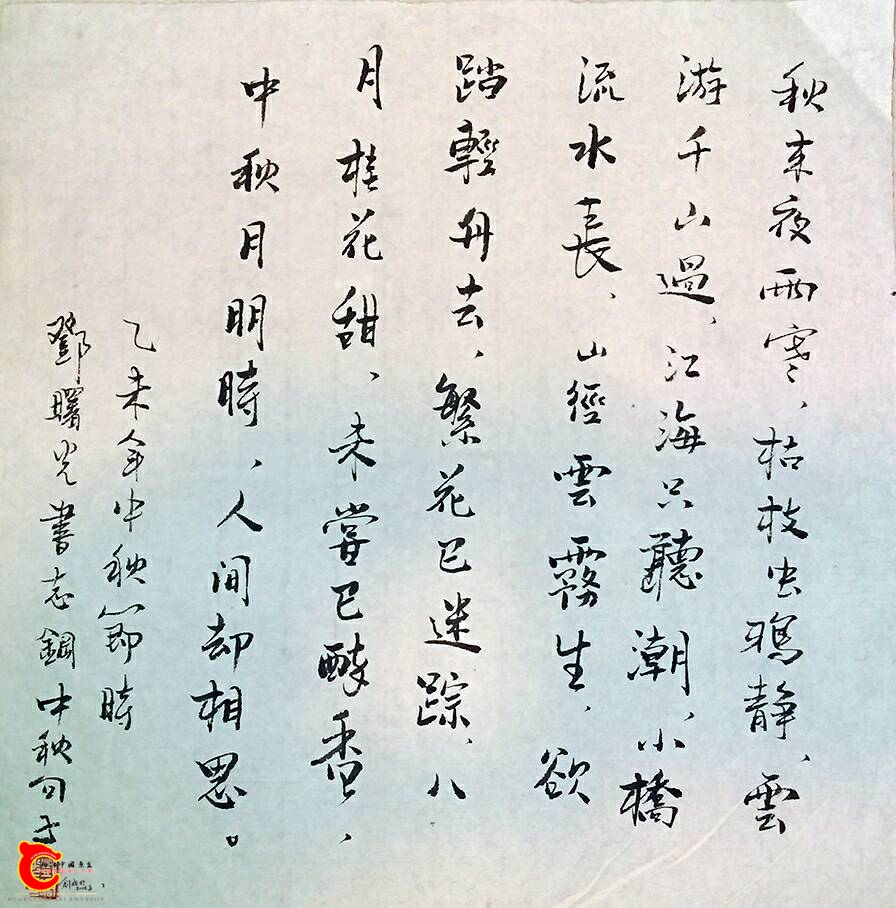 秋来夜雨寒、枯枝虫鴉静、雲
游千山過、江海只聽潮、小橋
流水長、山徑雲霧生、欲
踏輕舟去、繁花已迷踪、八
月桂花甜、未嘗已醉香、
中秋月明時、人间却相思。
乙未年中秋節時
鄧曙光書志鋼中秋句于
中國